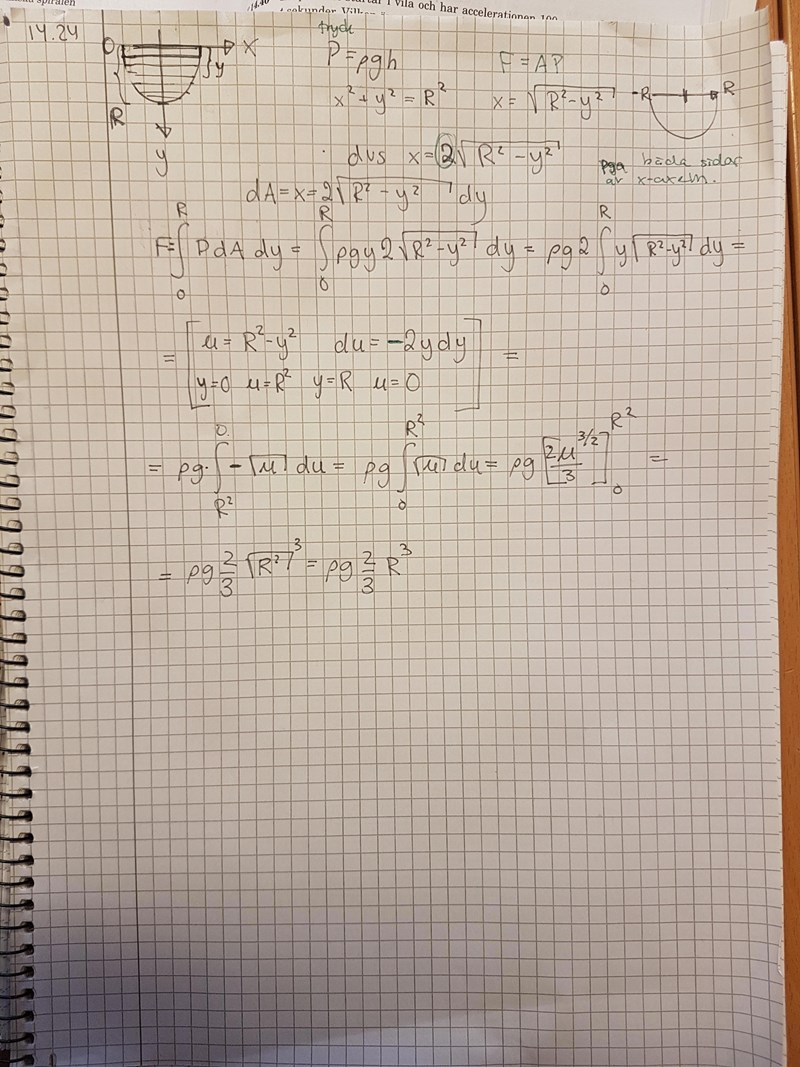 spiralen
14.40
i vila och har accelerationen 100
sekunder
14.24
tryck
O X
P = ρgh F = AP
y
R
x² + y² = R² x = √(R² - y²) -R R
y
dvs x = 2√(R² - y²) pga båda sidor
av x-axeln.
dA = x = 2√(R² - y²) dy
F = ∫₀ᴿ P dA dy = ∫₀ᴿ ρgy2√(R² - y²) dy = ρg2 ∫₀ᴿ y√(R² - y²) dy =
= [u = R² - y² du = -2y dy
y = 0 u = R² y = R u = 0] =
= ρg · ∫_{R²}^{0} -√u du = ρg ∫_{0}^{R²} √u du = ρg [2u^{3/2}/3]_{0}^{R²} =
= ρg 2/3 √(R²)³ = ρg 2/3 R³